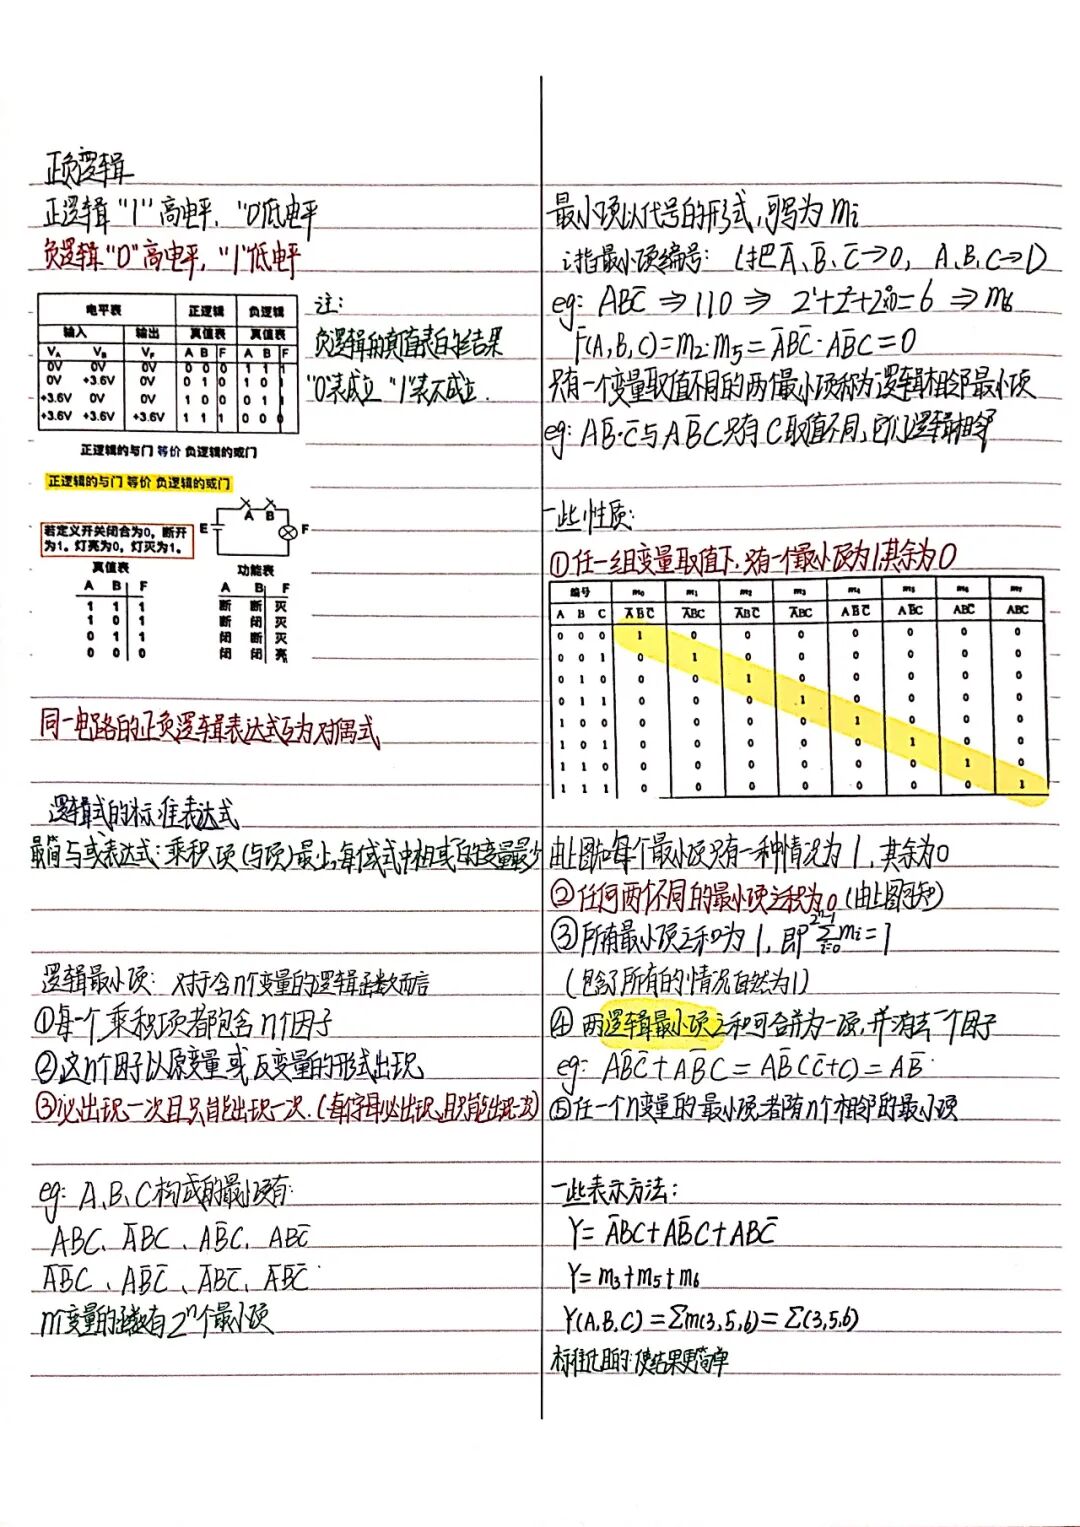 正负逻辑
正逻辑“1”高电平，“0低电平
负逻辑“0”高电平，“1”低电平
电平表 正逻辑 负逻辑
输入 输出 真值表 真值表
VA VB VF A B F A B F
0V 0V 0V 0 0 0 1 1 1
0V +3.6V 0V 0 1 0 1 0 1
+3.6V 0V 0V 1 0 0 0 1 1
+3.6V +3.6V +3.6V 1 1 1 0 0 0
注：
负逻辑的真值表的结果
“0”表成立 “1”表不成立.
正逻辑的与门 等价 负逻辑的或门
正逻辑的与门 等价 负逻辑的或门
若定义开关闭合为0，断开
为1。灯亮为0，灯灭为1。
E A B F
真值表
A B F
1 1 1
1 0 1
0 1 1
0 0 0
功能表
A B F
断 断 灭
断 闭 灭
闭 断 灭
闭 闭 亮
同一电路的正负逻辑表达式互为对偶式
逻辑式的标准表达式
最简与或表达式：乘积项(与项)最少，每个式中相或的变量最少
逻辑最小项：对于含n个变量的逻辑函数而言
①每一个乘积项都包含n个因子
②这n个因子以原变量或反变量的形式出现
③必出现一次且只能出现一次.(每个字母必出现，且只能出现一次)
eg：A、B、C构成的最小项有：
ABC、A̅BC、AB̅C、ABC̅
A̅B̅C、AB̅C̅、A̅BC̅、A̅B̅C̅
n个变量的函数有2ⁿ个最小项
最小项以代号的形式，可写为mi
i指最小项编号：(把A̅、B̅、C̅→0，A、B、C→1)
eg：ABC̅ ⇒ 110 ⇒ 2¹+2²+2×0=6 ⇒ m6
F(A,B,C)=m2·m5=A̅BC̅·AB̅C=0
只有一个变量取值不同的两个最小项称为逻辑相邻最小项
eg：AB̅·C̅与AB̅C只有C取值不同，它们逻辑相邻
一些性质：
①任一组变量取值下，只有一个最小项为1其余为0
编号 m₀ m₁ m₂ m₃ m₄ m₅ m₆ m₇
A B C A̅B̅C̅ A̅B̅C A̅BC̅ A̅BC AB̅C̅ AB̅C ABC̅ ABC
0 0 0 1 0 0 0 0 0 0 0
0 0 1 0 1 0 0 0 0 0 0
0 1 0 0 0 1 0 0 0 0 0
0 1 1 0 0 0 1 0 0 0 0
1 0 0 0 0 0 0 1 0 0 0
1 0 1 0 0 0 0 0 1 0 0
1 1 0 0 0 0 0 0 0 1 0
1 1 1 0 0 0 0 0 0 0 1
由上图知每个最小项只有一种情况为1，其余为0
②任何两个不同的最小项之积为0(由上图可知)
③所有最小项之和为1，即2ⁿ-1∑i=0 mi=1
(包含了所有的情况自然为1)
④两逻辑最小项之和可合并为一项，并消去一个因子
eg：AB̅C̅+AB̅C=AB̅(C̅+C)=AB̅
⑤任一个n变量的最小项都有n个相邻的最小项
一些表示方法：
Y=A̅BC+AB̅C+ABC̅
Y=m3+m5+m6
Y(A,B,C)=Σm(3,5,6)=Σ(3,5,6)
标准化目的：使结果更简单